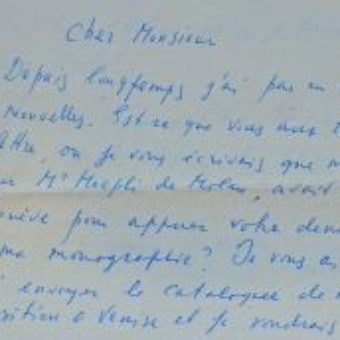 Cher Monsieur
Depuis longtemps j'ai pas eu
Nouvelles. Est ce que vous avez
ttre, où je vous écrivais que
Mr de Milan, avait
nève pour appuyer votre
ma monographie? Je vous
envoyer le catalogue de
sition a Venise et je voudrais